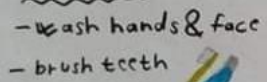 - wash hands & face
- brush teeth